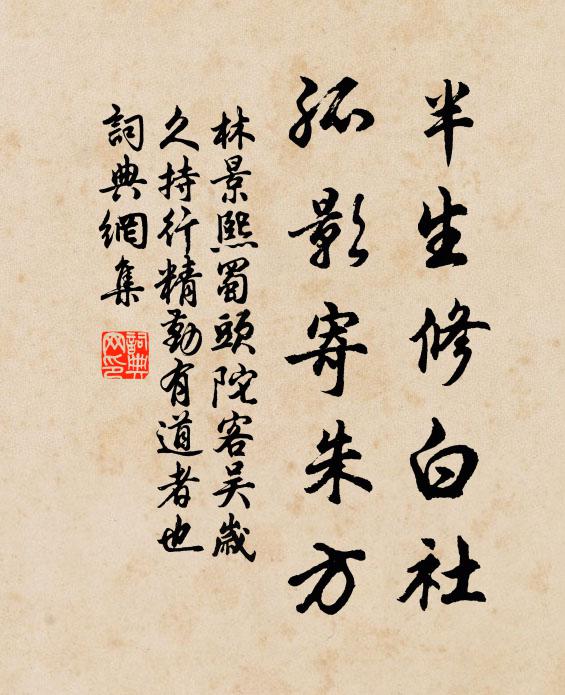 半生修白社
孤影寄朱方
林景熙蜀頭陀客吴歲
久持行精勤有道者也
詞典網集
詞典网印